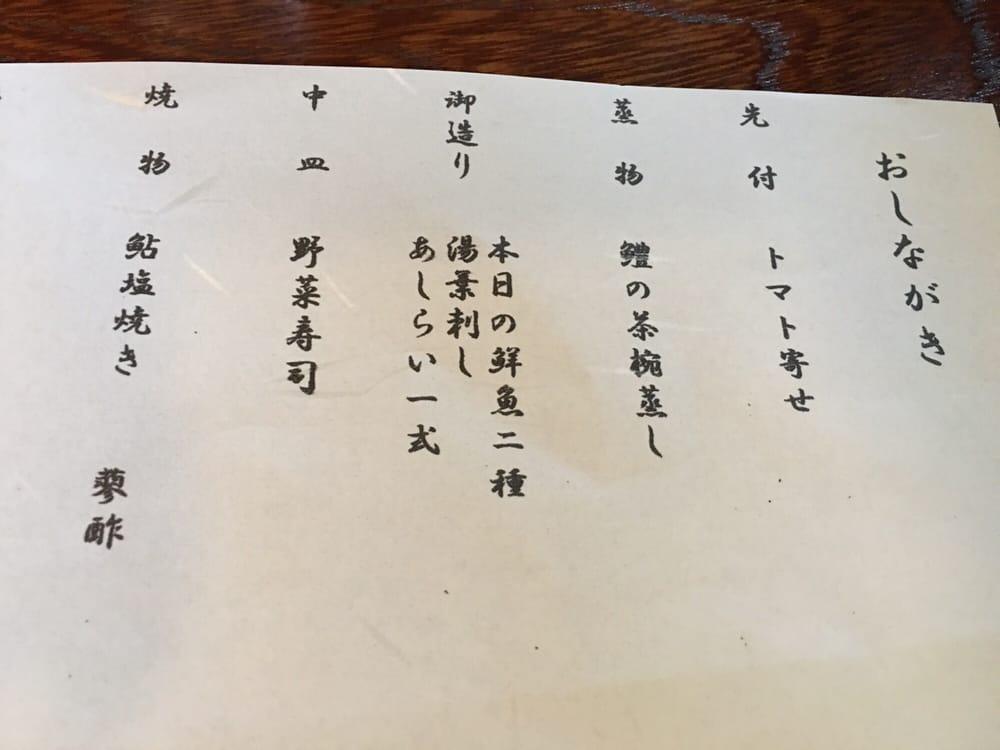 おしながき
先付 トマト寄せ
蒸物 鱧の茶椀蒸し
御造り 本日の鮮魚二種
湯葉刺し
あしらい一式
中皿 野菜寿司
焼物 鮎塩焼き 蓼酢